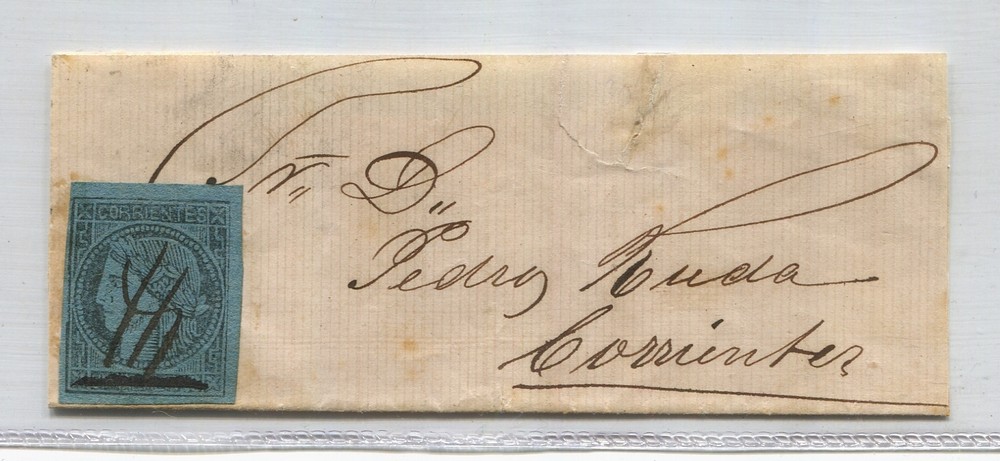 Sr. Dn.
Pedro Rueda
Corrientes
CORRIENTES